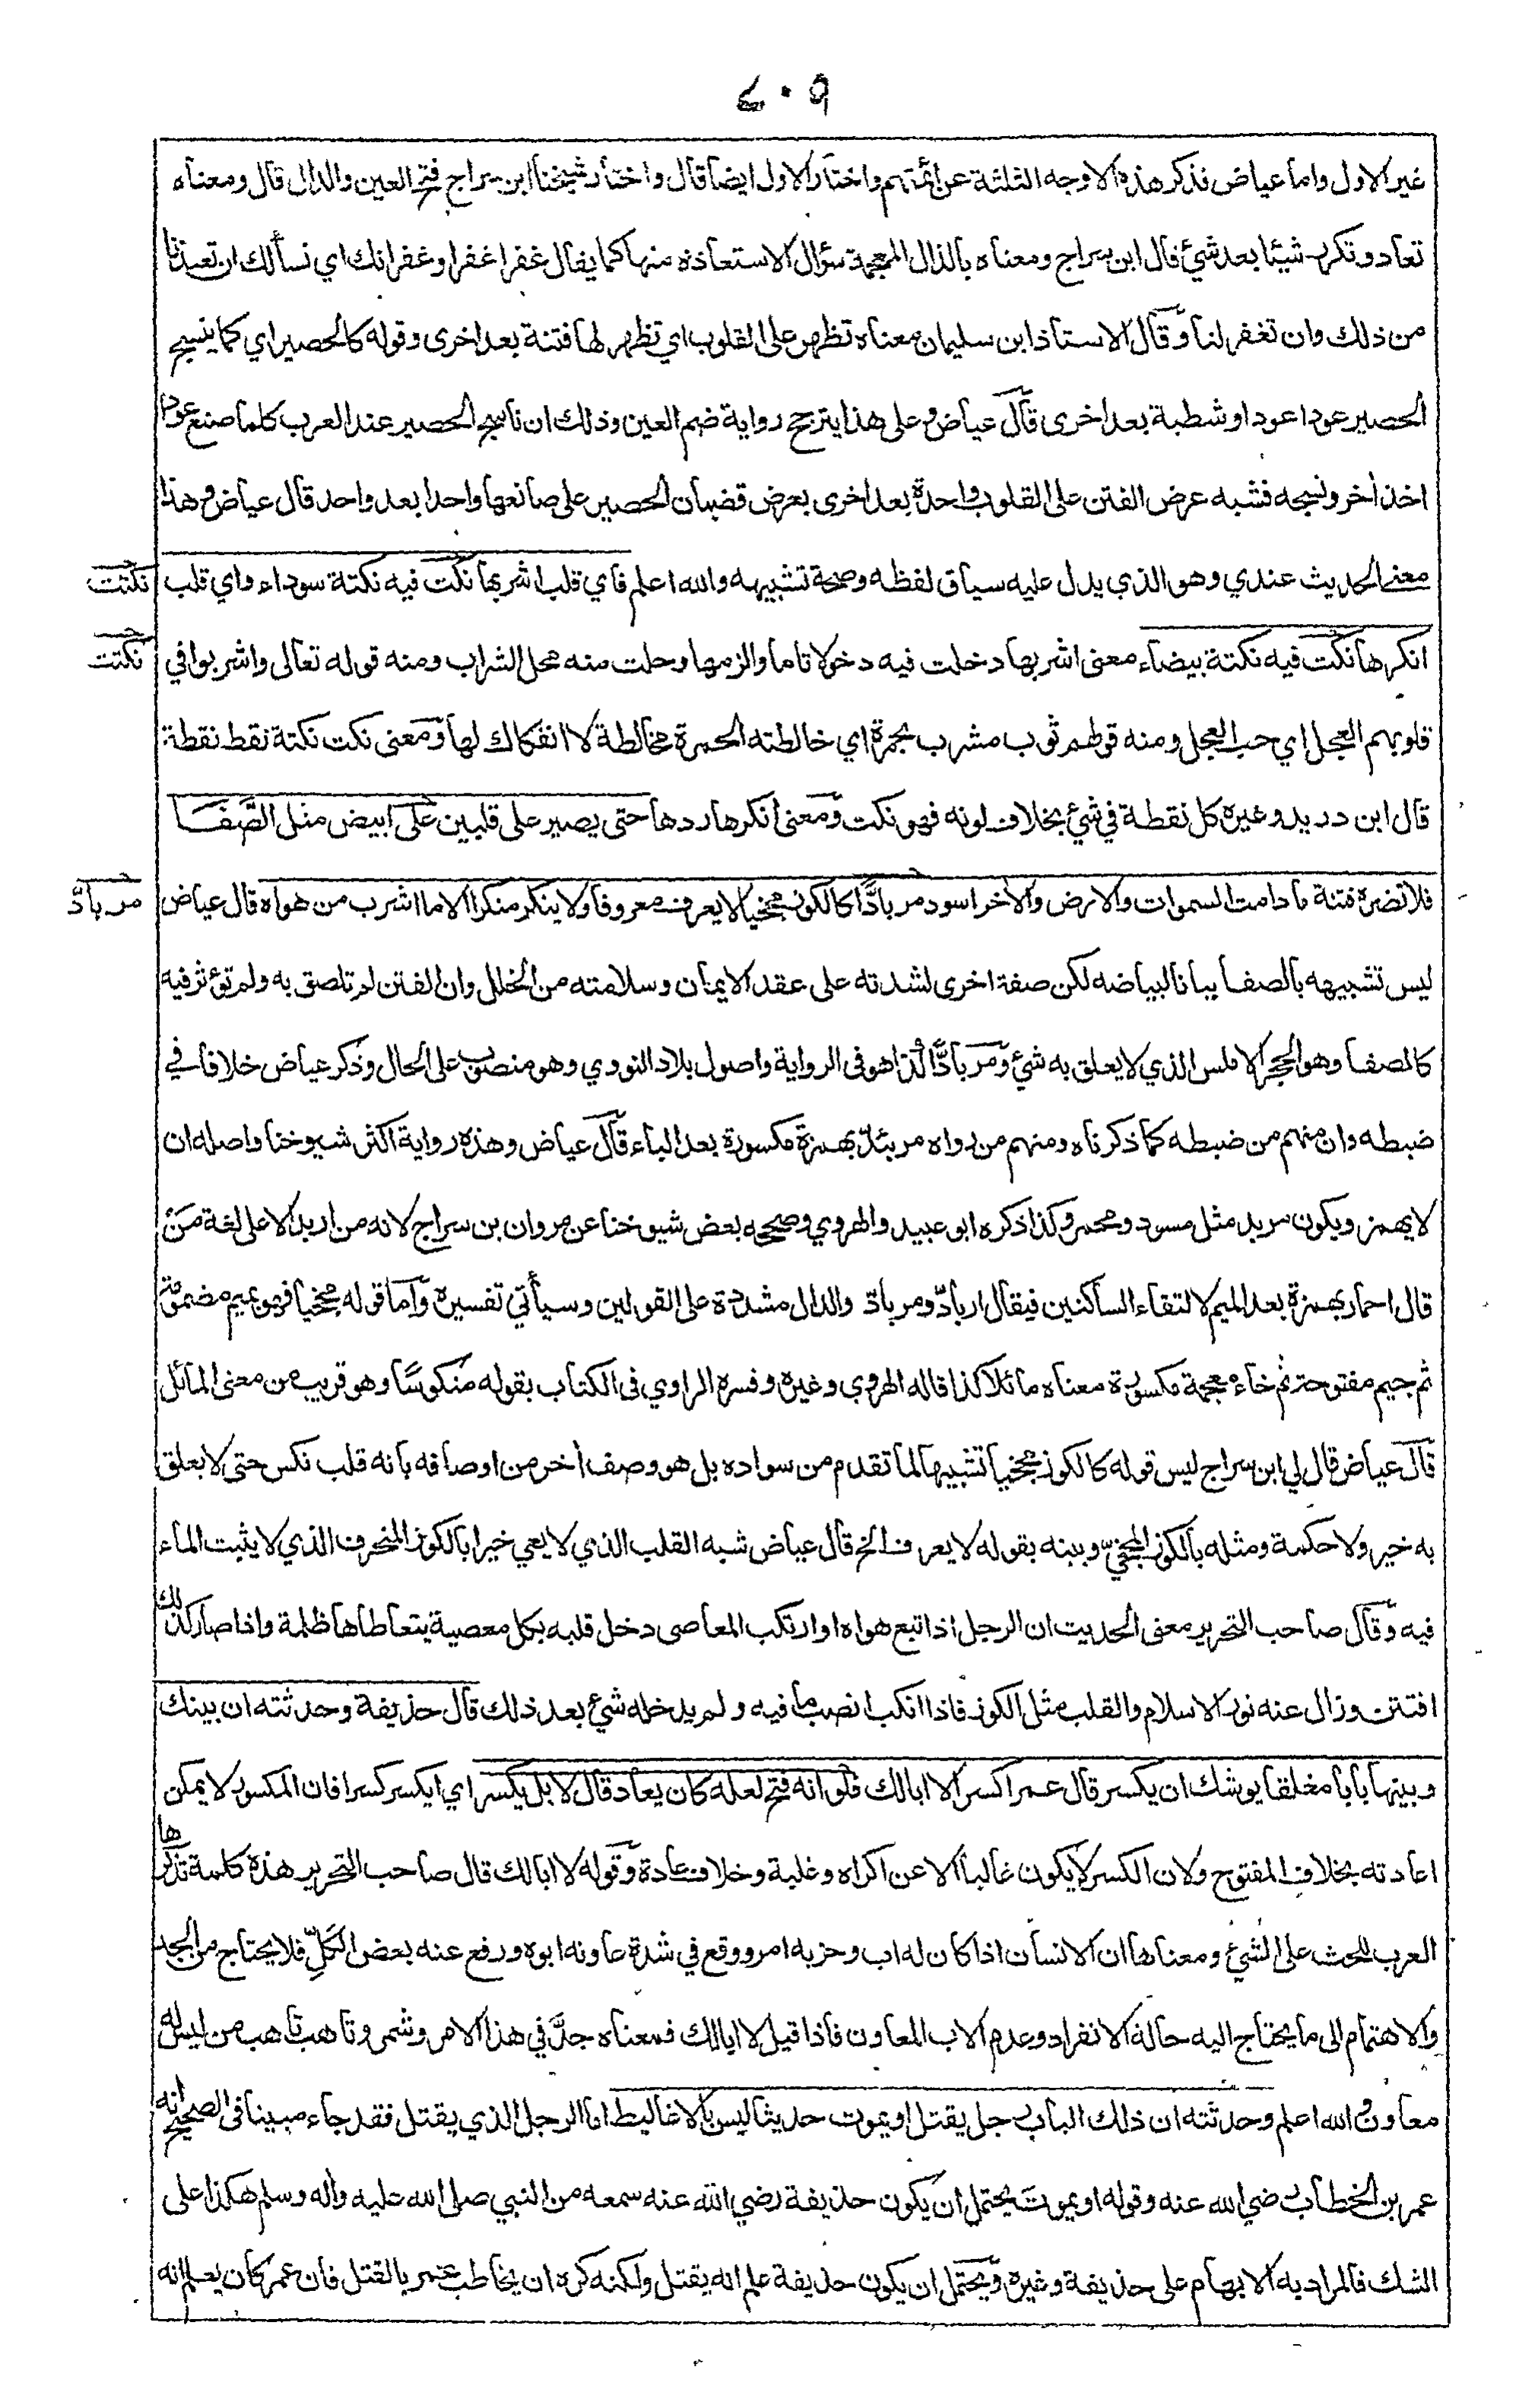 ٢٠٩
غير الاول واما عياض فذكر هذه الاوجه الثلثة عن ائمتهم واختار الاول ايضا قال واختار شيخنا ابن سراج فتح العين والدال قال ومعناه
تعاد وتكرر شيئا بعد شيئ قال ابن سراج ومعناه بالذال المعجمة سؤال الاستعاذة منها كما يقال غفرا غفرا وغفرانك اي نسألك ان تعيذنا
من ذلك وان تغفر لنا وقال الاستاذ ابن سليمان معناه تظهر على القلوب اي تظهر لها فتنة بعد اخرى وقوله كالحصير اي كما ينسج
الحصير عودا عودا وشطبة بعد اخرى قال عياض وعلى هذا يترجح رواية ضم العين وذلك ان ناسج الحصير عند العرب كلما صنع عودا
اخذ اخر ونسجه فشبه عرض الفتن على القلوب واحدة بعد اخرى بعرض قضبان الحصير على صانعها واحدا بعد واحد قال عياض وهذا
معنى الحديث عندي وهو الذي يدل عليه سياق لفظه وصحة تشبيهه والله اعلم فاي قلب اشربها نكت فيه نكتة سوداء واي قلب
نكتت
انكرها نكت فيه نكتة بيضاء معنى اشربها دخلت فيه دخولا تاما والزمها وحلت منه محل الشراب ومنه قوله تعالى واشربوا في
نكتت
قلوبهم العجل اي حب العجل ومنه قولهم ثوب مشرب بحمرة اي خالطته الحمرة مخالطة لا انفكاك لها ومعنى نكت نكتة نقط نقطة
قال ابن دريد وغيره كل نقطة في شيئ بخلاف لونه فهو نكت ومعنى انكرها ردها حتى يصير على قلبين على ابيض مثل الصَّفَا
فلا تضره فتنة ما دامت السموات والارض والاخر اسود مرباداًّ كالكوز مجخيا لا يعرف معروفا ولا ينكر منكرا الا ما اشرب من هواه قال عياض
مربادّ
ليس تشبيهه بالصفا بيانا لبياضه لكن صفة اخرى لشدته على عقد الايمان وسلامته من الخلل وان الفتن لم تلصق به ولم تؤثر فيه
كالصفا وهو الحجر الاملس الذي لا يعلق به شيئ ومرباداًّ كذا هو في الرواية واصول بلاد النووي وهو منصوب على الحال وذكر عياض خلافا في
ضبطه وان منهم من ضبطه كما ذكرناه ومنهم من رواه مربئدّ بهمزة مكسورة بعد الباء قال عياض وهذه رواية اكثر شيوخنا واصله ان
لا يهمز ويكون مربد مثل مسود ومحمر وكذا ذكره ابو عبيد والهروي وصححه بعض شيوخنا عن مروان بن سراج لانه من اربد الا على لغة مَن
قال احمار بهمزة بعد الميم لالتقاء الساكنين فيقال اربادّ ومربادّ والدال مشددة على القولين وسيأتي تفسيره واما قوله مجخيا فهو بميم مضمومة
ثم جيم مفتوحة ثم خاء معجمة مكسورة معناه مائلا كذا قاله الهروي وغيره وفسره الراوي في الكتاب بقوله منكوسًا وهو قريب من معنى المائل
قال عياض قال لي ابن سراج ليس قوله كالكوز مجخيا تشبيها لما تقدم من سواده بل هو وصف اخر من اوصافه بانه قلب نكس حتى لا يعلق
به خير ولا حكمة ومثله بالكوز المجخيّ وبينه بقوله لا يعرف الخ قال عياض شبه القلب الذي لا يعي خيرا بالكوز المنحرف الذي لا يثبت الماء
فيه وقال صاحب التحرير معنى الحديث ان الرجل اذا تبع هواه وارتكب المعاصى دخل قلبه بكل معصية يتعاطاها ظلمة واذا صار كذلك
افتتن وزال عنه نور الاسلام والقلب مثل الكوز فاذا انكب انصب ما فيه ولم يدخله شيئ بعد ذلك قال حذيفة وحدثته ان بينك
وبينها بابا مغلقا يوشك ان يكسر قال عمر اكسرا لا ابا لك فلو انه فتح لعله كان يعاد قال لا بل يكسر اي ايكسر كسرا فان المكسور لا يمكن
اعادته بخلاف المفتوح ولان الكسر لا يكون غالبا الا عن اكراه وغلبة وخلاف عادة وقوله لا ابا لك قال صاحب التحرير هذه كلمة تذكرها
العرب للحث على الشيئ ومعناها ان الانسان اذا كان له اب وحزبه امر ووقع في شدة عاونه ابوه ورفع عنه بعض الكَلّ فلا يحتاج من الجد
والاهتمام الى ما يحتاج اليه حالة الانفراد وعدم الاب المعاون فاذا قيل لا ابا لك فمعناه جدّ في هذا الامر وشمر وتاهب تاهب من ليس له
معاون والله اعلم وحدثته ان ذلك الباب رجل يقتل او يموت حديثا ليس بالاغاليط اما الرجل الذي يقتل فقد جاء مبينا في الصحيح انه
عمر بن الخطاب رضي الله عنه وقوله او يموت يحتمل ان يكون حذيفة رضي الله عنه سمعه من النبي صلى الله عليه واله وسلم هكذا على
الشك فالمراد به الابهام على حذيفة وغيره ويحتمل ان يكون حذيفة علم انه يقتل ولكنه كره ان يخاطب عمر بالقتل فان عمر كان يعلم انه